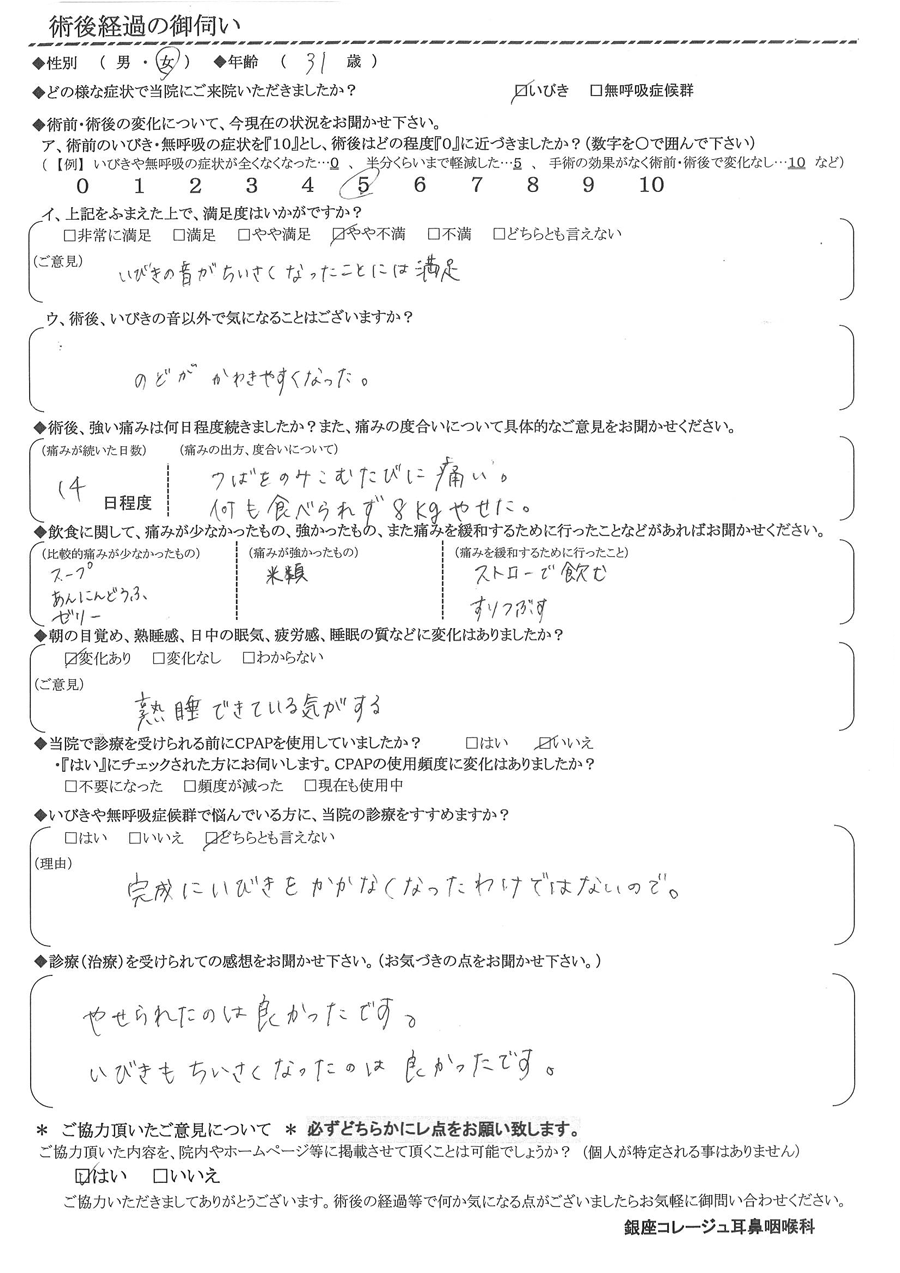 術後経過の御伺い
◆性別 ( 男 ・ 女 ) ◆年齢 ( 31 歳 )
◆どの様な症状で当院にご来院いただきましたか? ☑いびき □無呼吸症候群
◆術前・術後の変化について、今現在の状況をお聞かせ下さい。
ア、術前のいびき・無呼吸の症状を『10』とし、術後はどの程度『0』に近づきましたか?(数字を○で囲んで下さい)
(【例】いびきや無呼吸の症状が全くなくなった…0 、 半分くらいまで軽減した…5 、 手術の効果がなく術前・術後で変化なし…10 など)
0 1 2 3 4 5 6 7 8 9 10
イ、上記をふまえた上で、満足度はいかがですか?
□非常に満足 □満足 □やや満足 ☑やや不満 □不満 □どちらとも言えない
(ご意見)
いびきの音がちいさくなったことには満足
ウ、術後、いびきの音以外で気になることはございますか?
のどが かわきやすくなった。
◆術後、強い痛みは何日程度続きましたか?また、痛みの度合いについて具体的なご意見をお聞かせください。
(痛みが続いた日数) (痛みの出方、度合いについて)
つばをのみこむたびに痛い。
14 日程度
何も食べられず8kgやせた。
◆飲食に関して、痛みが少なかったもの、強かったもの、また痛みを緩和するために行ったことなどがあればお聞かせください。
(比較的痛みが少なかったもの) (痛みが強かったもの) (痛みを緩和するために行ったこと)
スープ 米類 ストローで飲む
あんにんどうふ、
ゼリー すりつぶす
◆朝の目覚め、熟睡感、日中の眠気、疲労感、睡眠の質などに変化はありましたか?
☑変化あり □変化なし □わからない
(ご意見)
熟睡できている気がする
◆当院で診療を受けられる前にCPAPを使用していましたか? □はい ☑いいえ
・『はい』にチェックされた方にお伺いします。CPAPの使用頻度に変化はありましたか?
□不要になった □頻度が減った □現在も使用中
◆いびきや無呼吸症候群で悩んでいる方に、当院の診療をすすめますか?
□はい □いいえ ☑どちらとも言えない
(理由)
完成にいびきをかかなくなったわけではないので。
◆診療(治療)を受けられての感想をお聞かせ下さい。(お気づきの点をお聞かせ下さい。)
やせられたのは良かったです。
いびきもちいさくなったのは良かったです。
＊ ご協力頂いたご意見について ＊ 必ずどちらかにレ点をお願い致します。
ご協力頂いた内容を、院内やホームページ等に掲載させて頂くことは可能でしょうか? (個人が特定される事はありません)
☑はい □いいえ
ご協力いただきましてありがとうございます。術後の経過等で何か気になる点がございましたらお気軽に御問い合わせください。
銀座コレージュ耳鼻咽喉科